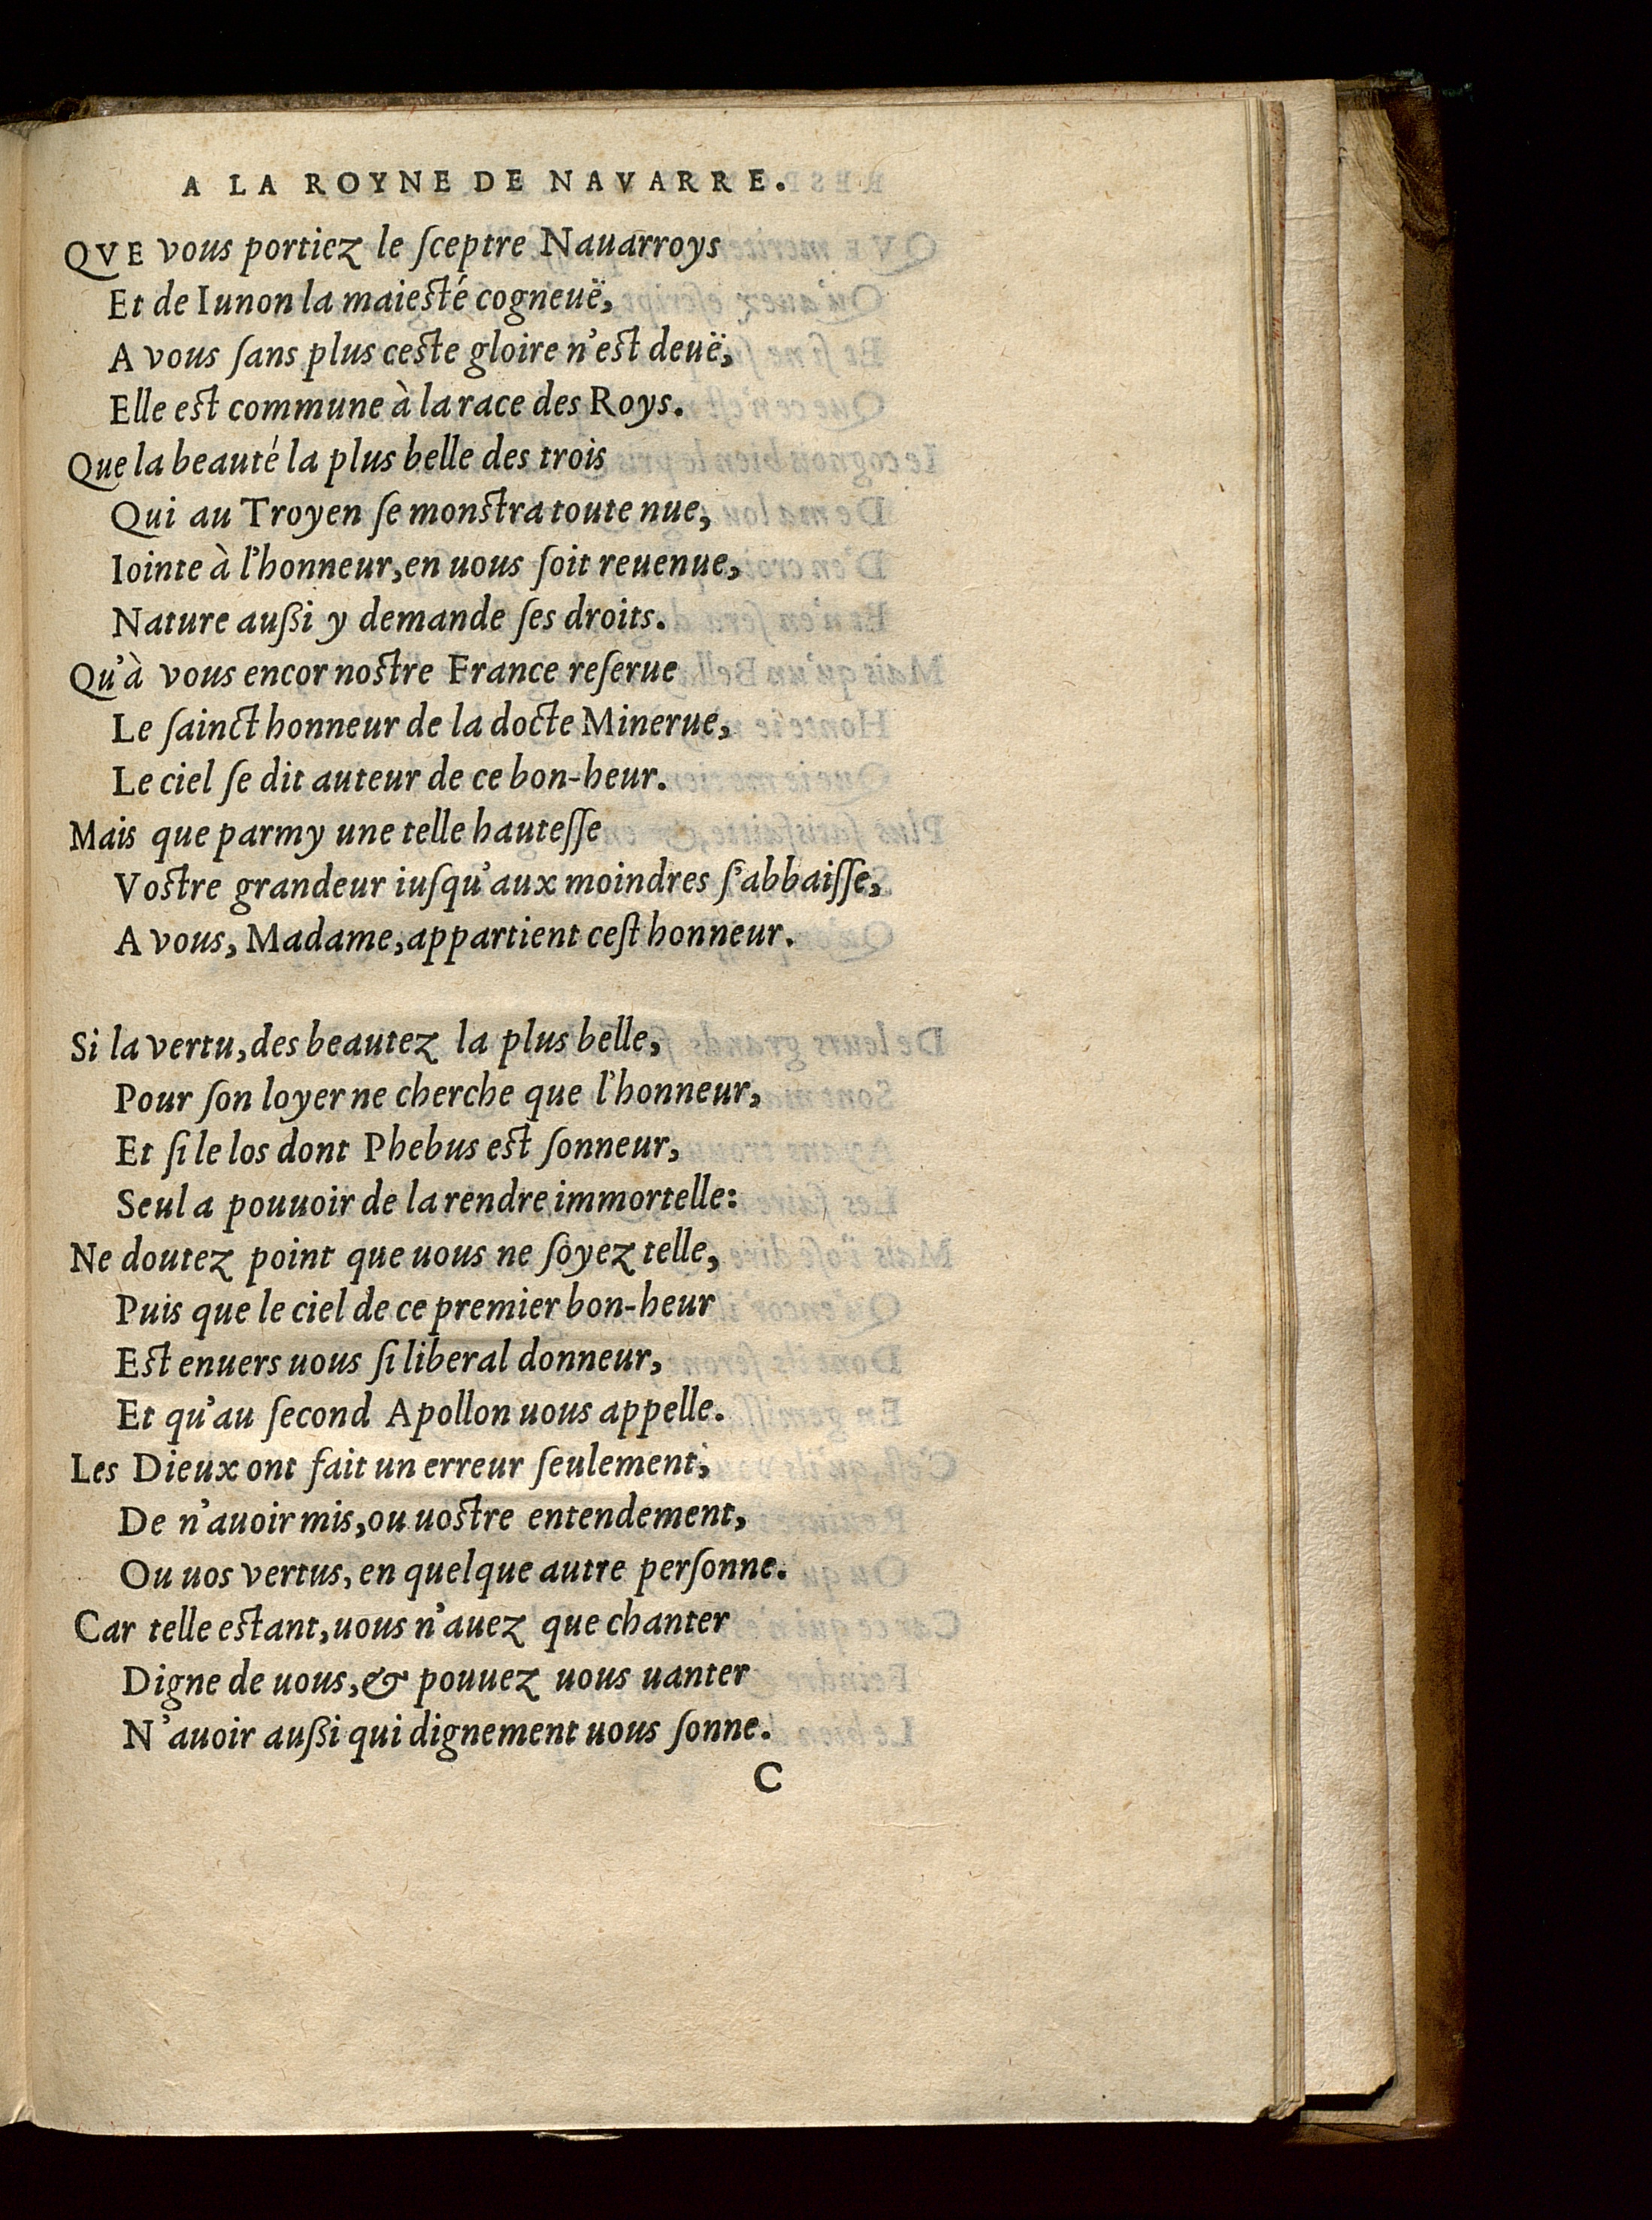 A LA ROYNE DE NAVARRE.
QVE vous portiez le ſceptre Nauarroys
Et de Iunon la maieſté cogneuë,
A vous ſans plus ceſte gloire n'eſt deuë,
Elle eſt commune à la race des Roys.
Que la beauté la plus belle des trois
Qui au Troyen ſe monſtra toute nue,
Iointe à l'honneur, en uous ſoit reuenue,
Nature außi y demande ſes droits.
Qu'à vous encor noſtre France reſerue
Le ſainct honneur de la docte Minerue,
Le ciel ſe dit auteur de ce bon-heur.
Mais que parmy une telle hauteſſe
Voſtre grandeur iuſqu'aux moindres ſ'abbaiſſe,
A vous, Madame, appartient ceſt honneur.
Si la vertu, des beautez la plus belle,
Pour ſon loyer ne cherche que l'honneur,
Et ſi le los dont Phebus eſt ſonneur,
Seul a pouuoir de la rendre immortelle:
Ne doutez point que uous ne ſoyez telle,
Puis que le ciel de ce premier bon-heur
Eſt enuers uous ſi liberal donneur,
Et qu'au ſecond Apollon uous appelle.
Les Dieux ont fait un erreur ſeulement,
De n'auoir mis, ou uoſtre entendement,
Ou uos vertus, en quelque autre perſonne.
Car telle eſtant, uous n'auez que chanter
Digne de uous, & pouuez uous uanter
N'auoir außi qui dignement uous ſonne.
C